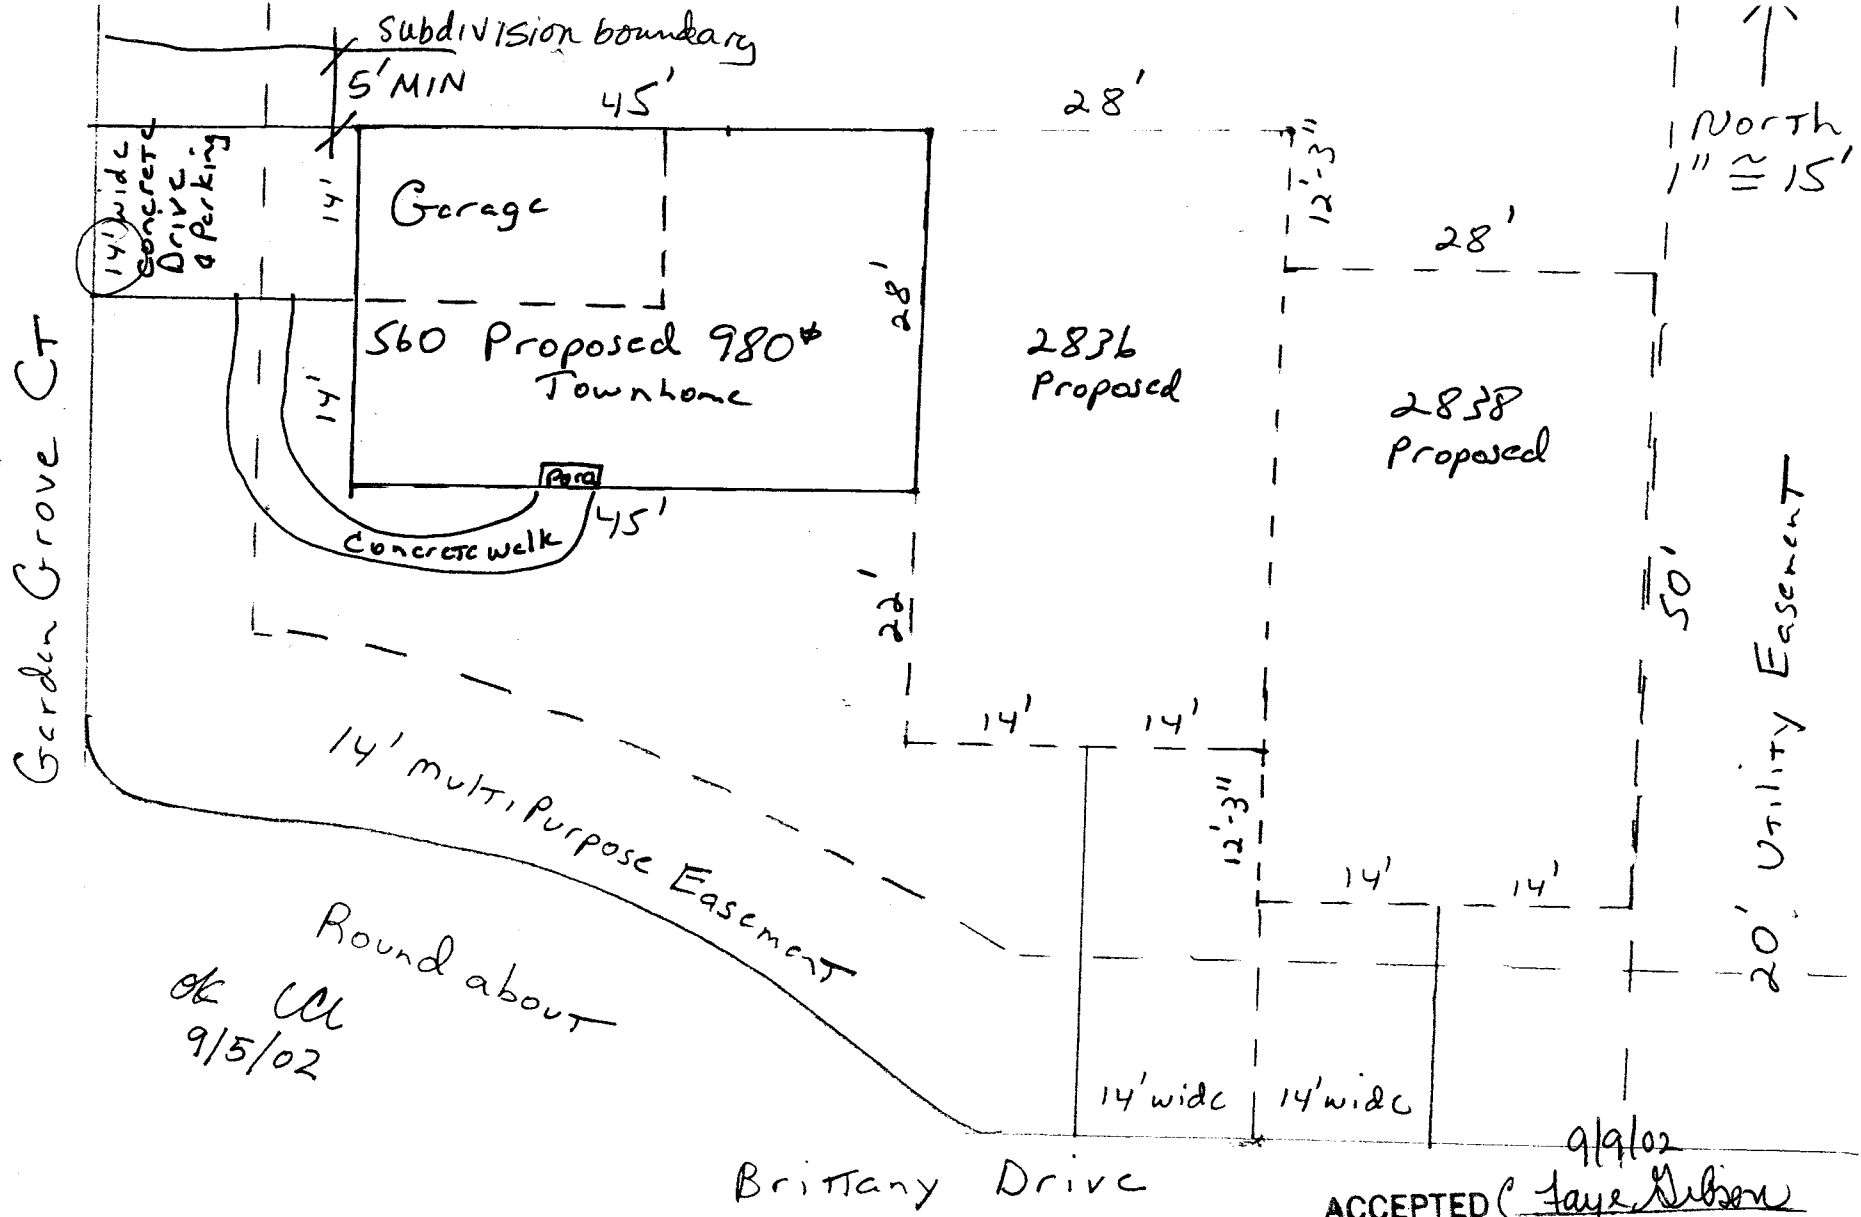 subdivision boundary
5' MIN
45'
28'
North
1" ≅ 15'
14' wide
Concrete
Drive
& Parking
14'
Garage
28'
12'-3"
28'
560 Proposed 980
Townhome
14'
2836
Proposed
2838
Proposed
Garden Grove CT
45'
Concrete walk
22'
50'
20' Utility Easement
14'
14'
12'-3"
14'
14'
14' multi Purpose Easement
Round about
ok
9/5/02
14' wide
14' wide
9/9/02
Brittany Drive
ACCEPTED Faye Gibson